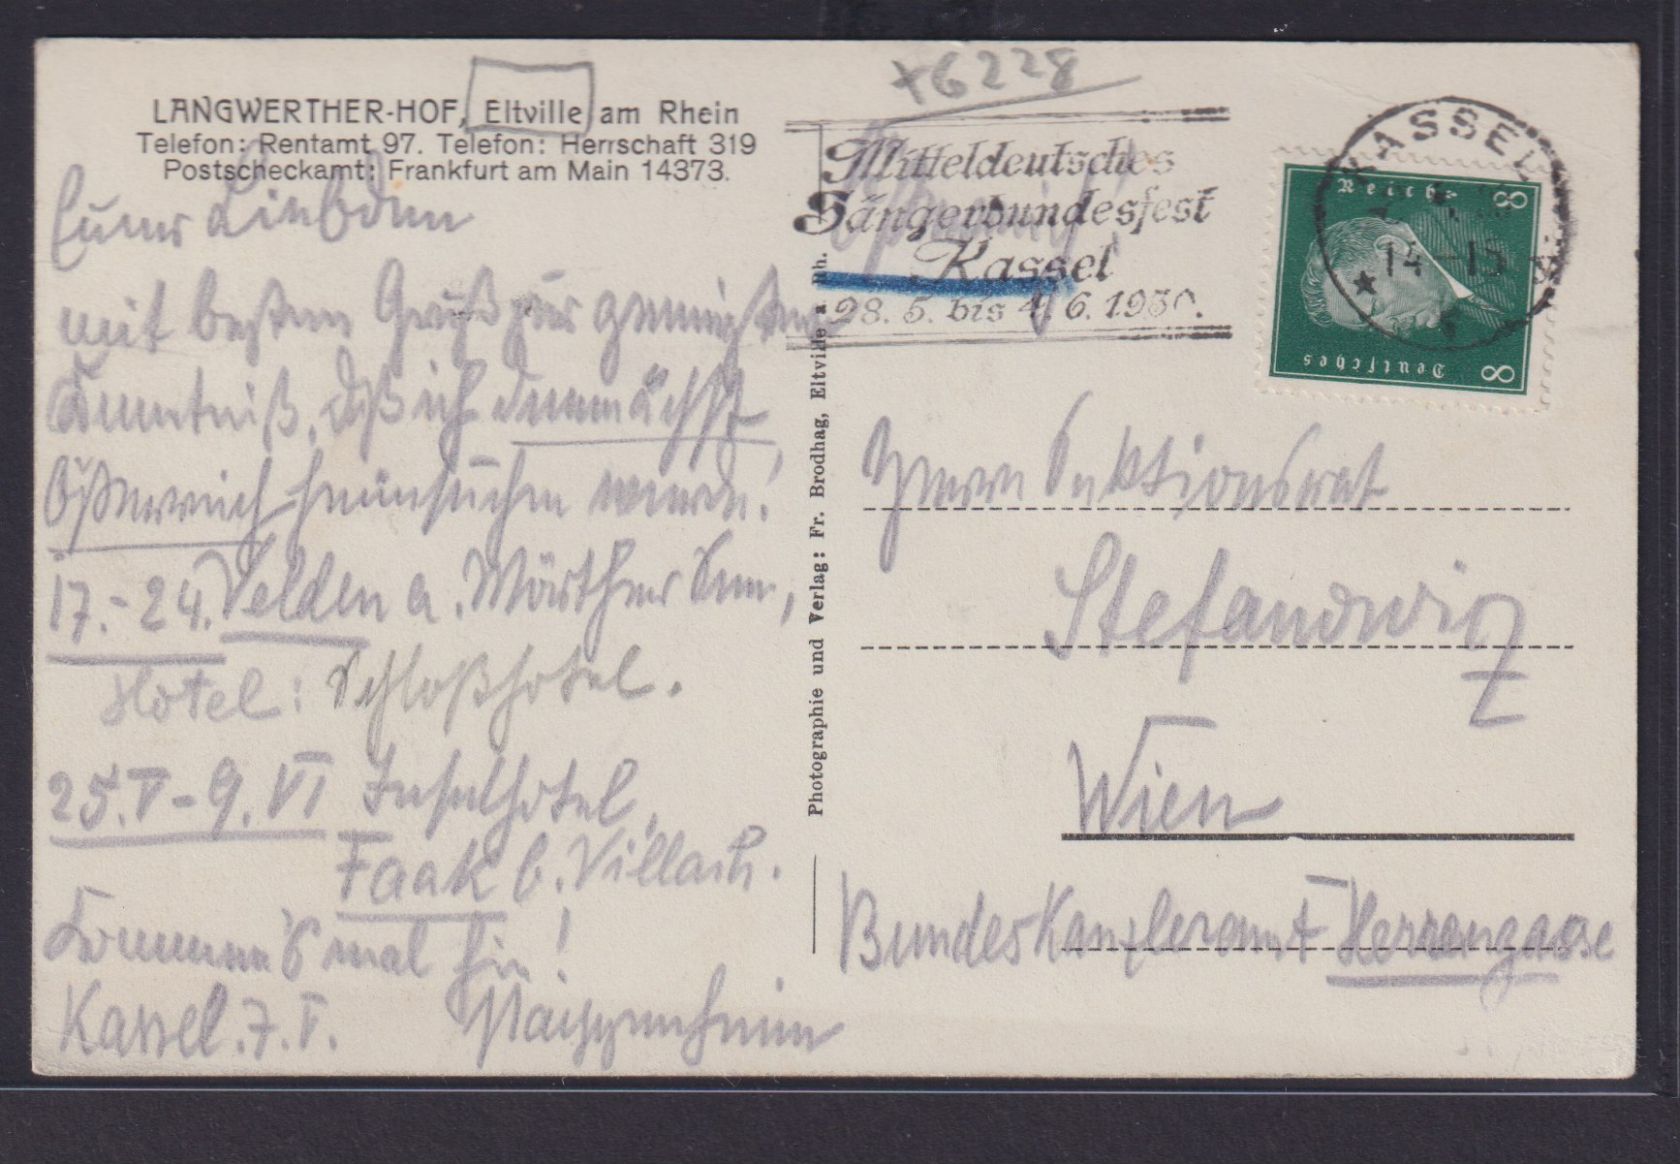 +6228
LANGWERTHER-HOF, Eltville am Rhein
Telefon: Rentamt 97. Telefon: Herrschaft 319
Postscheckamt: Frankfurt am Main 14373.
Euer Liebden
mit bestem Gruß zur geneigten
Kenntniß, daß ich demnächst
Österreich heimsuchen werde!
17.-24. Velden a. Wörther See,
Hotel: Schloßhotel.
25.V-9.VI Inselhotel,
Faak b. Villach.
Kommen's mal hin!
Kassel.7.V.
Photographie und Verlag: Fr. Brodhag, Eltville a. Rh.
Mitteldeutsches
Sängerbundesfest
Kassel
28. 5. bis 4. 6. 1930.
KASSEL
14-15
Deutsches Reich
8 8
Herrn Sektionsrat
Stefanowicz
Wien
Bundeskanzleramt Herrengasse